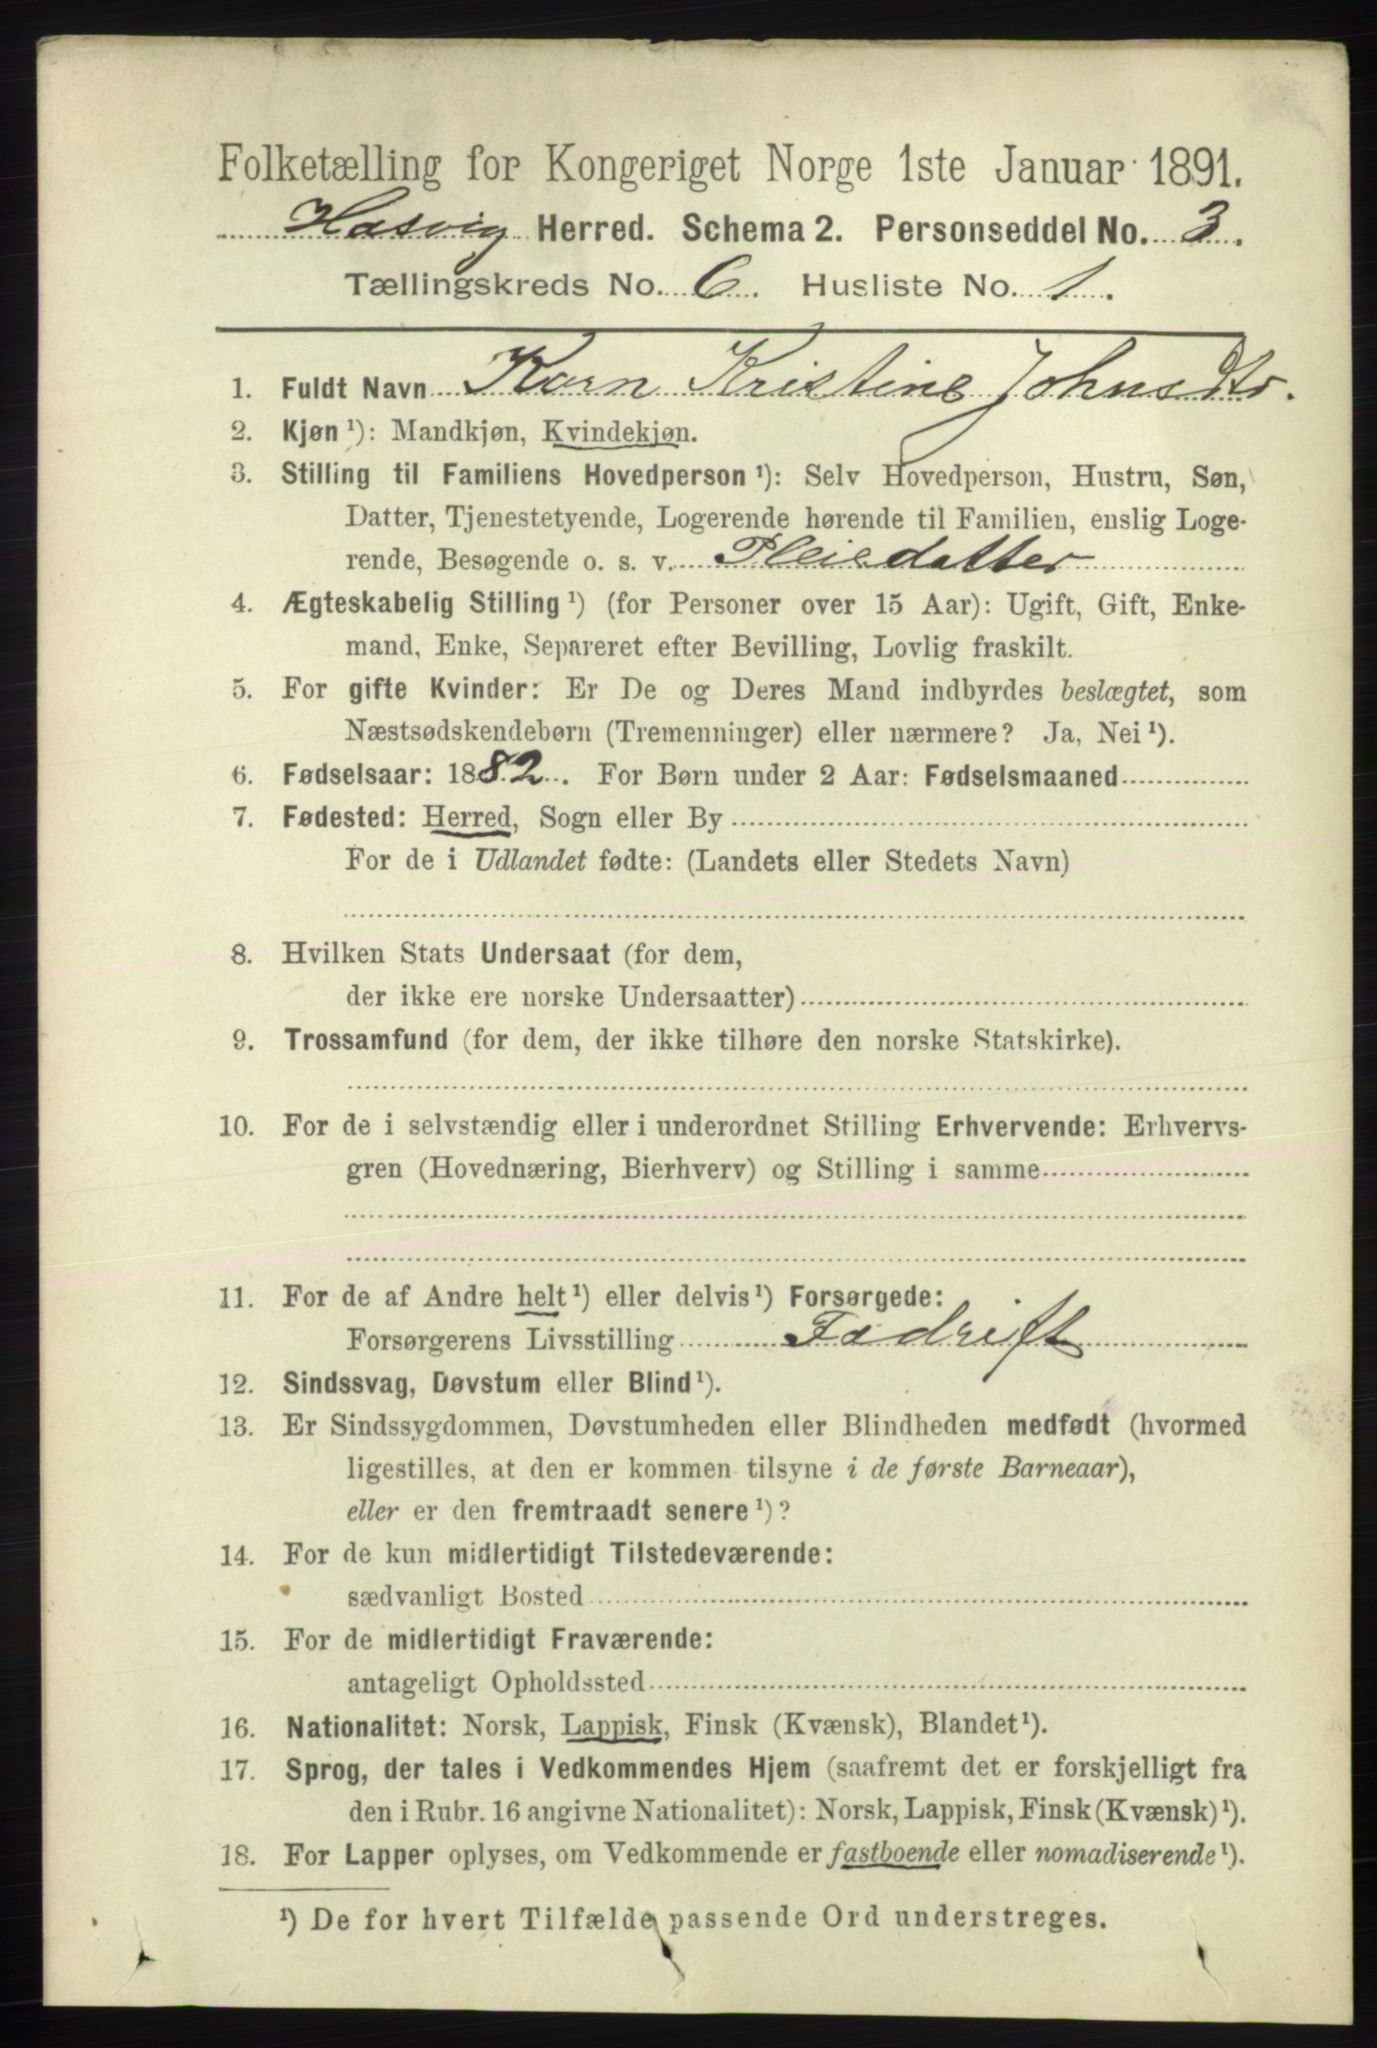 Folketælling for Kongeriget Norge 1ste Januar 1891.
Hasvig Herred. Schema 2. Personseddel No. 3.
Tællingskreds No. 6. Husliste No. 1.
1. Fuldt Navn Karn Kristine JohnsDtr.
2. Kjøn ¹): Mandkjøn, Kvindekjøn.
3. Stilling til Familiens Hovedperson ¹): Selv Hovedperson, Hustru, Søn,
Datter, Tjenestetyende, Logerende hørende til Familien, enslig Loge-
rende, Besøgende o. s. v. Pleiedatter
4. Ægteskabelig Stilling ¹) (for Personer over 15 Aar): Ugift, Gift, Enke-
mand, Enke, Separeret efter Bevilling, Lovlig fraskilt.
5. For gifte Kvinder: Er De og Deres Mand indbyrdes beslægtet, som
Næstsødskendebørn (Tremenninger) eller nærmere? Ja, Nei ¹).
6. Fødselsaar: 1882. For Børn under 2 Aar: Fødselsmaaned
7. Fødested: Herred, Sogn eller By
For de i Udlandet fødte: (Landets eller Stedets Navn)
8. Hvilken Stats Undersaat (for dem,
der ikke ere norske Undersaatter)
9. Trossamfund (for dem, der ikke tilhøre den norske Statskirke).
10. For de i selvstændig eller i underordnet Stilling Erhvervende: Erhvervs-
gren (Hovednæring, Bierhverv) og Stilling i samme
11. For de af Andre helt ¹) eller delvis ¹) Forsørgede:
Forsørgerens Livsstilling Fædrift
12. Sindssvag, Døvstum eller Blind ¹).
13. Er Sindssygdommen, Døvstumheden eller Blindheden medfødt (hvormed
ligestilles, at den er kommen tilsyne i de første Barneaar),
eller er den fremtraadt senere ¹)?
14. For de kun midlertidigt Tilstedeværende:
sædvanligt Bosted
15. For de midlertidigt Fraværende:
antageligt Opholdssted
16. Nationalitet: Norsk, Lappisk, Finsk (Kvænsk), Blandet ¹).
17. Sprog, der tales i Vedkommendes Hjem (saafremt det er forskjelligt fra
den i Rubr. 16 angivne Nationalitet): Norsk, Lappisk, Finsk (Kvænsk) ¹).
18. For Lapper oplyses, om Vedkommende er fastboende eller nomadiserende ¹).
¹) De for hvert Tilfælde passende Ord understreges.